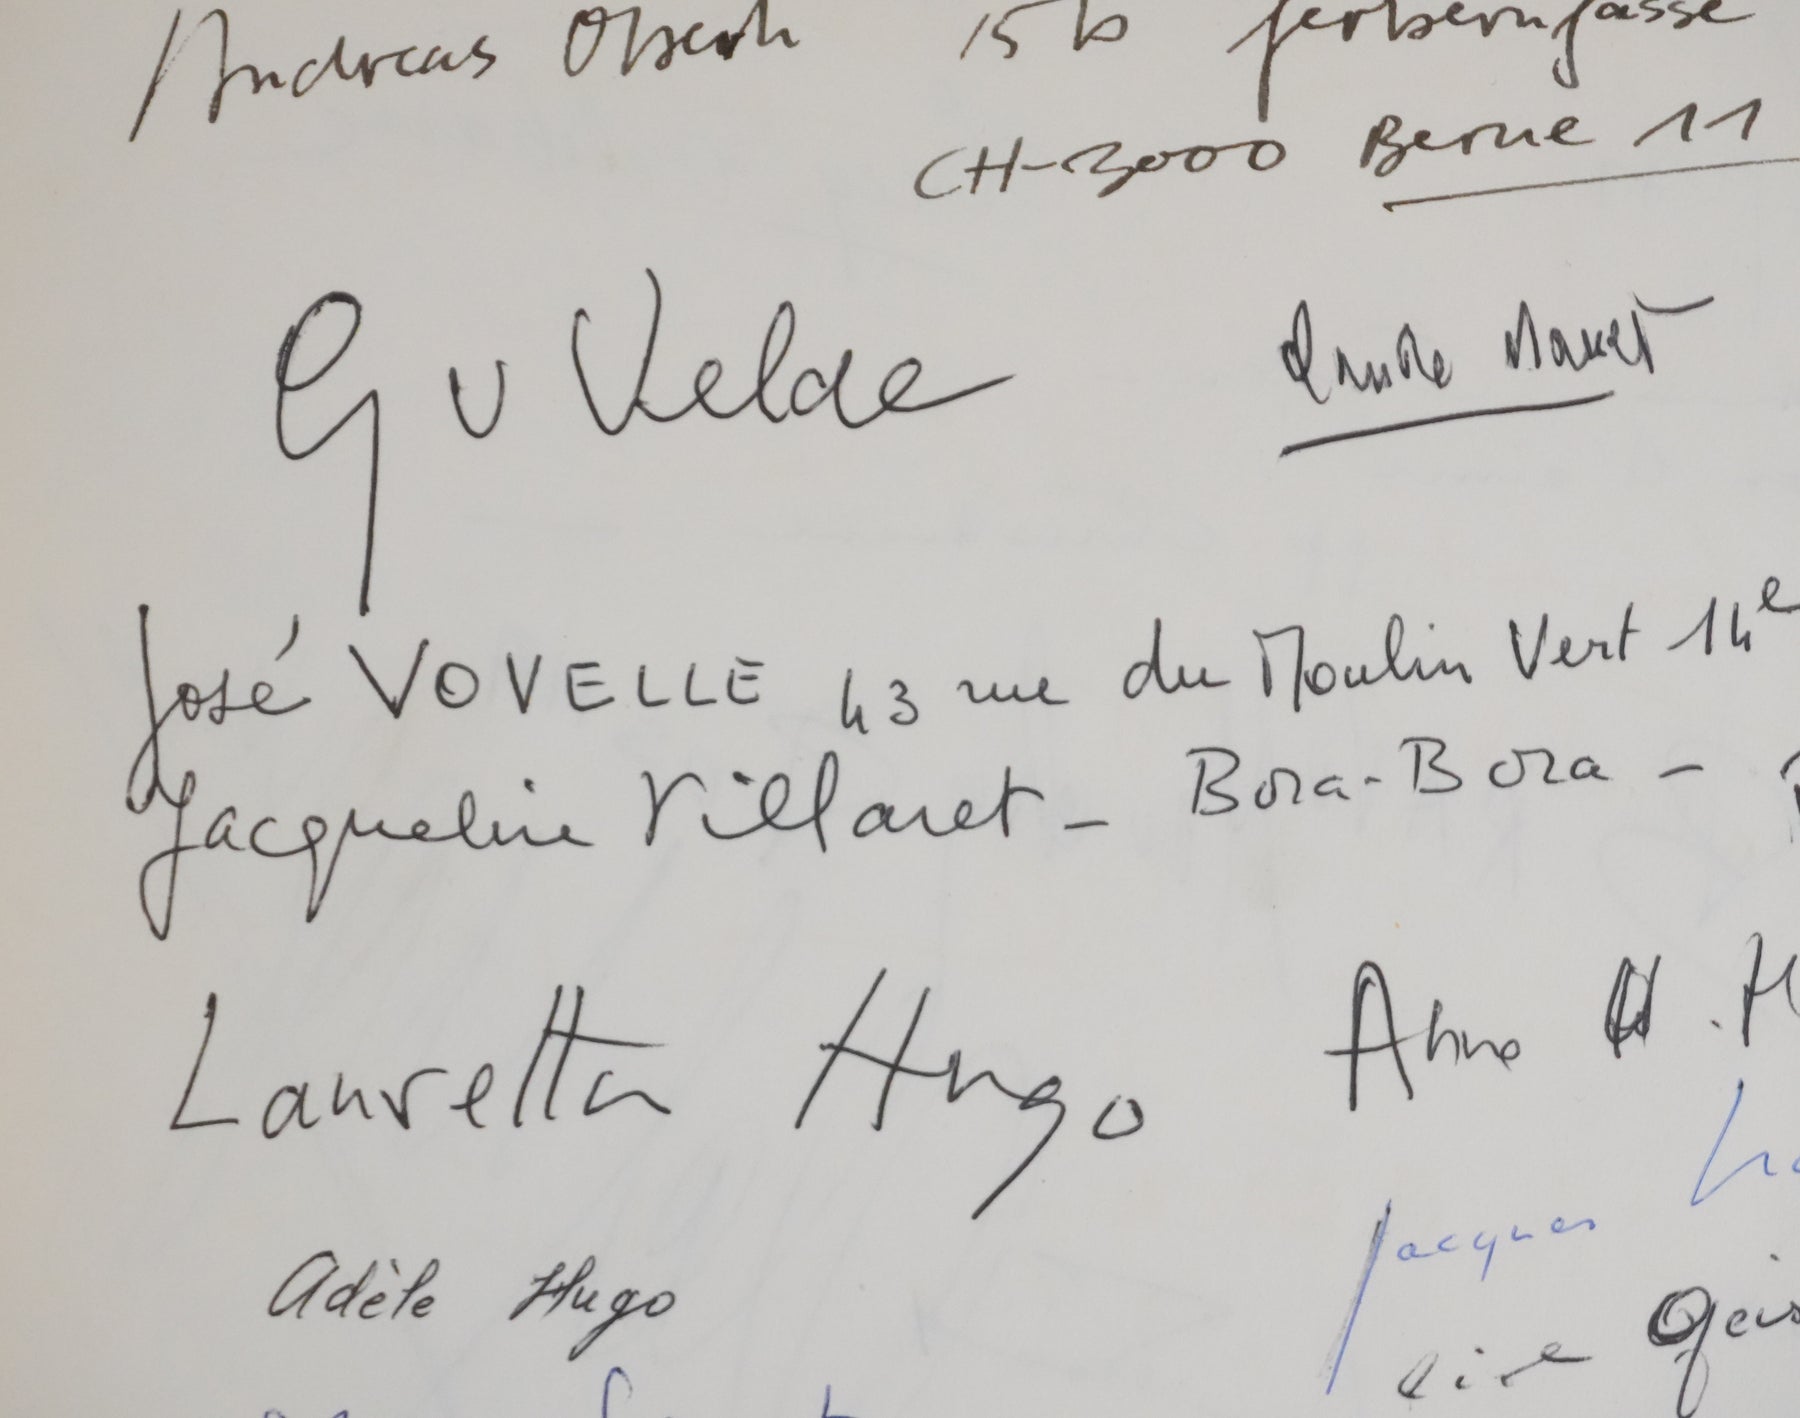 Andreas 15b Gerberngasse
CH-3000 Berne 11
G v Velde
José VOVELLE 43 rue du Moulin Vert 14e
Jacqueline Villaret - Bora-Bora -
Lauretta Hugo Anne
Jacques
Adèle Hugo